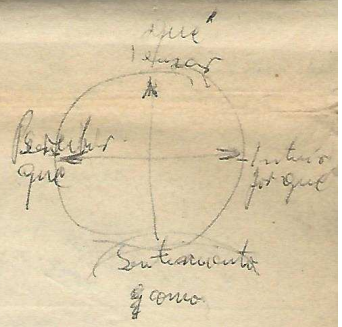 qué
Pensar
Percibir
que
Intuir
por qué
Sentimiento
y como